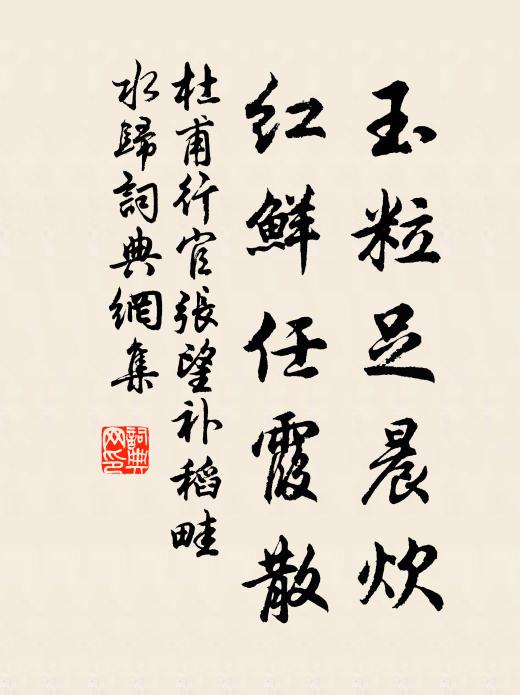 玉粒足晨炊
红鲜任霞散
杜甫行官张望补稻畦
水歸詞典網集
詞典
网印